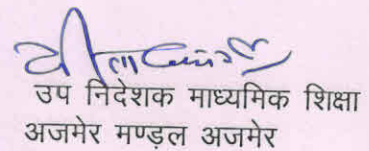 उप निदेशक माध्यमिक शिक्षा
अजमेर मण्डल अजमेर